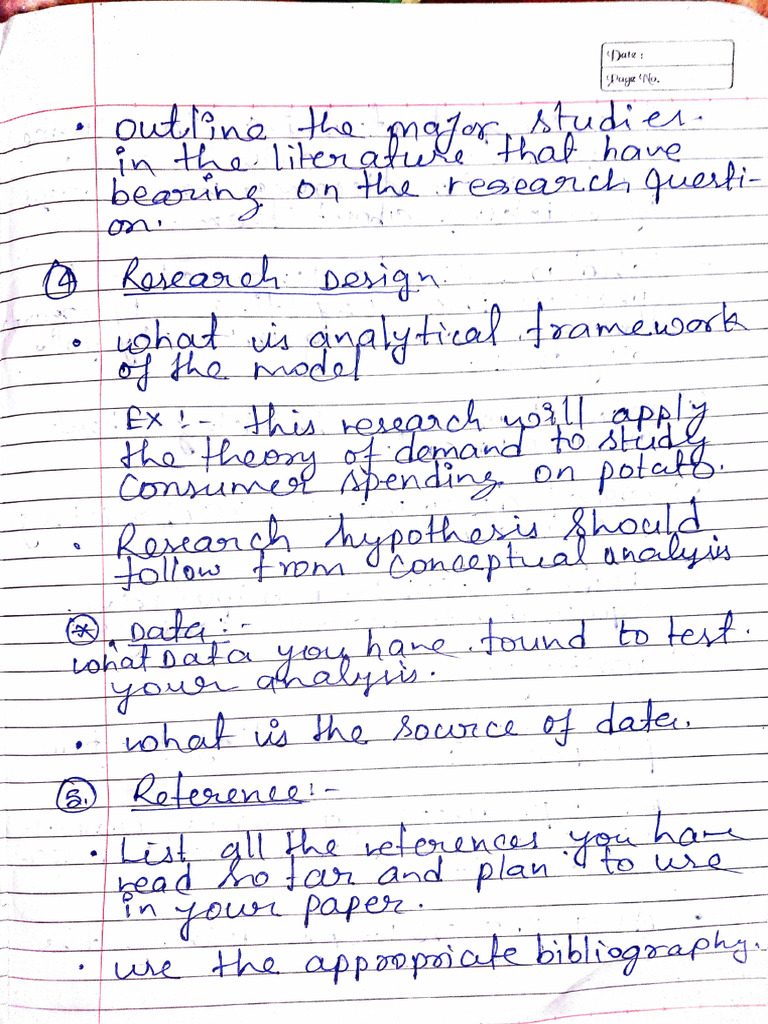 Date :
Page No.
• outline the major studies.
in the literature that have
bearing on the research questi-
on.
④ Research Design
• what is analytical framework
of the model
Ex :- this research will apply
the theory of demand to study
consumer spending on potato.
• Research hypothesis should
follow from conceptual analysis
* . Data :-
what Data you have found to test
your analysis.
• what is the source of data.
⑤. Reference :-
• List all the references you have
read so far and plan to use
in your paper.
• use the appropriate bibliography.